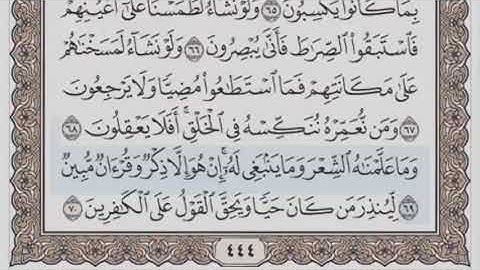 بِمَا كَانُوا۟ يَكْسِبُونَ ٦٥ وَلَوْ نَشَآءُ لَطَمَسْنَا عَلَىٰٓ أَعْيُنِهِمْ
فَٱسْتَبَقُوا۟ ٱلصِّرَٰطَ فَأَنَّىٰ يُبْصِرُونَ ٦٦ وَلَوْ نَشَآءُ لَمَسَخْنَٰهُمْ
عَلَىٰ مَكَانَتِهِمْ فَمَا ٱسْتَطَٰعُوا۟ مُضِيًّا وَلَا يَرْجِعُونَ
٦٧ وَمَن نُّعَمِّرْهُ نُنَكِّسْهُ فِى ٱلْخَلْقِ ۖ أَفَلَا يَعْقِلُونَ ٦٨
وَمَا عَلَّمْنَٰهُ ٱلشِّعْرَ وَمَا يَنۢبَغِى لَهُۥٓ ۚ إِنْ هُوَ إِلَّا ذِكْرٌ وَقُرْءَانٌ مُّبِينٌ
٦٩ لِّيُنذِرَ مَن كَانَ حَيًّا وَيَحِقَّ ٱلْقَوْلُ عَلَى ٱلْكَٰفِرِينَ ٧٠
٤٤٤